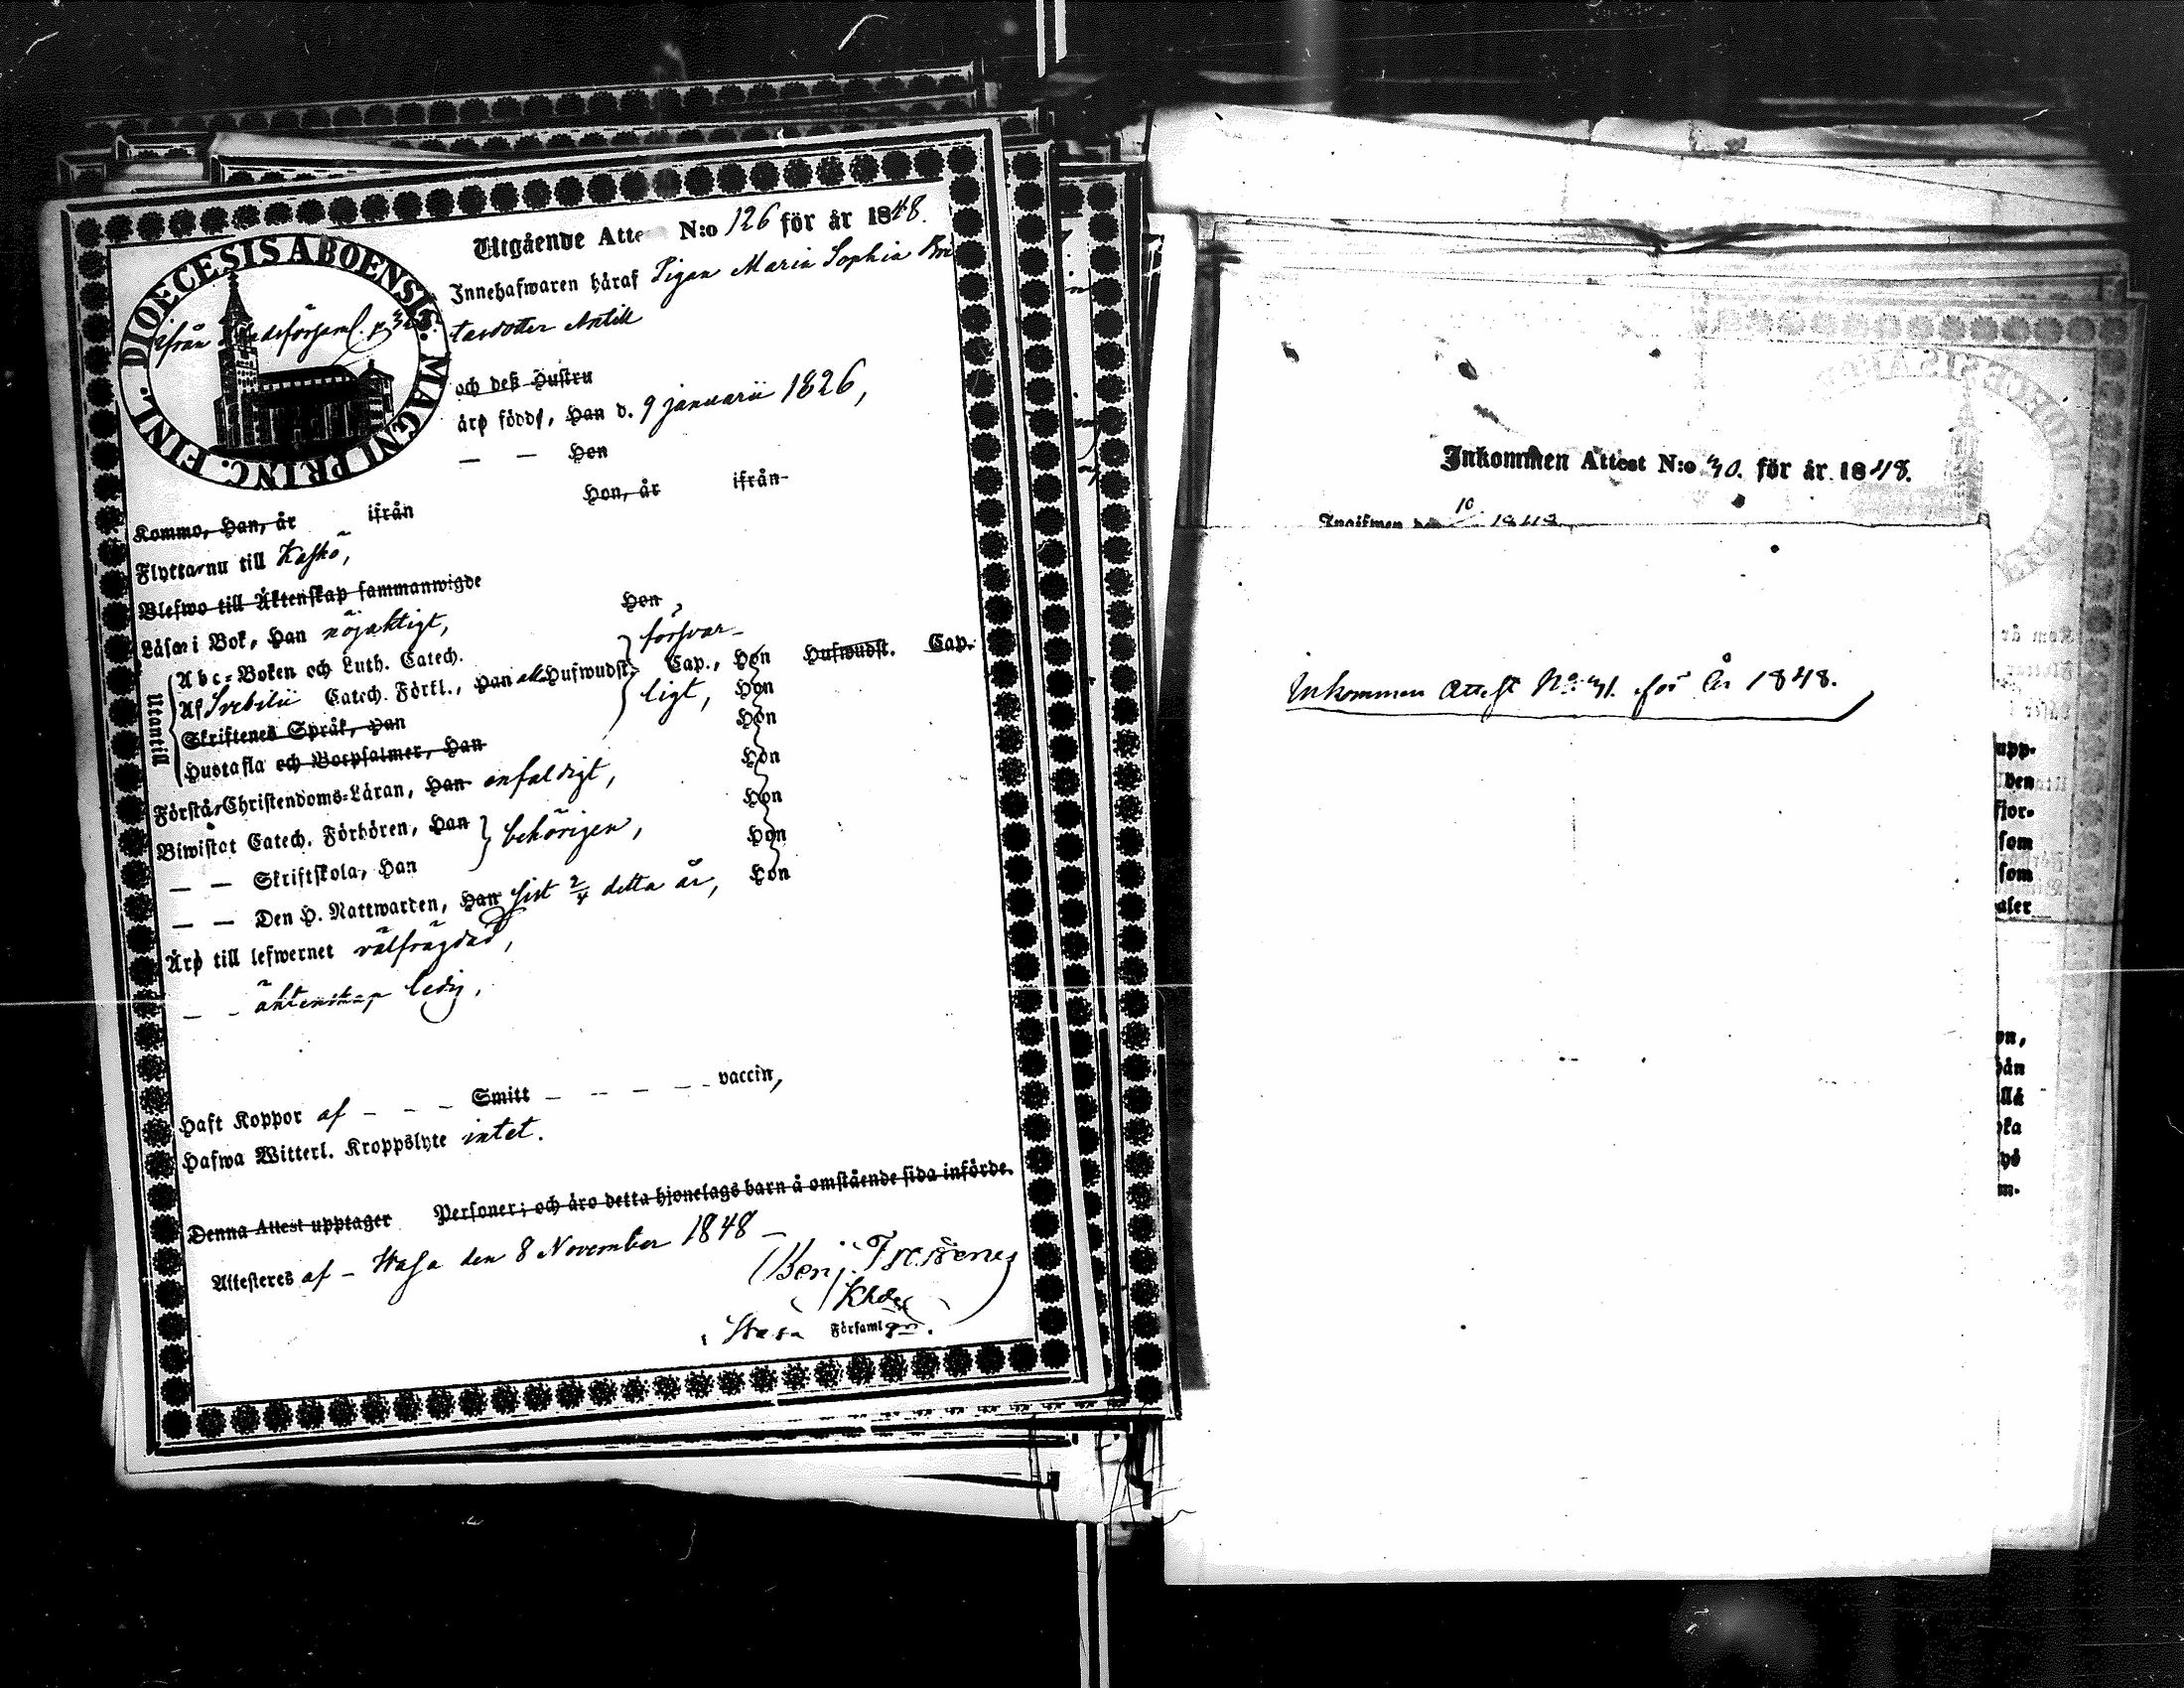 DIOECESIS ABOENSIS. MAGNI PRINC. FINL.
ifrån
Utgående Atte N:o 126 för år 1848.
Innehafwaren häraf Pigan Maria Sophia
Antill
och deß Hustru
äro födde, Han d. 9 januarii 1826,
— — Hon
Kommo, Han, år ifrån Hon, år ifrån
Flytta nu till Kaskö,
Blefwo till Äktenskap sammanwigde
Läsa i Bok, Han nöjaktigt, Hon
Utantill
Abc-Boken och Luth. Catech. försvar-
Af Svebilii Catech. Förkl., Han alla Hufwudst. Cap., Hon Hufwudst. Cap.
Skriftenes Språk, Han ligt, Hon
Hustafla och Botpsalmer, Han Hon
Förstår Christendoms-Läran, Han enfaldigt, Hon
Biwistat Catech. Förhören, Han behörigen, Hon
— — Skriftskola, Han Hon
— — Den H. Nattwarden, Han sist 2/4 detta år, Hon
Äro till lefwernet välfrägdad,
— - äktenskap ledig.
Haft Koppor af - - - Smitt - - - - - vaccin,
Hafwa Witterl. Kroppslyte intet.
Denna Attest upptager Personer; och äro detta hjonelags barn å omstående sida införde.
Attesteres af - Wasa den 8 November 1848 -
Benj.
Wasa Församl
Inkommen Attest N:o 40. för år 1848.
10
Inkommen Attest No 41. för År 1848.
upp-
den
som
som